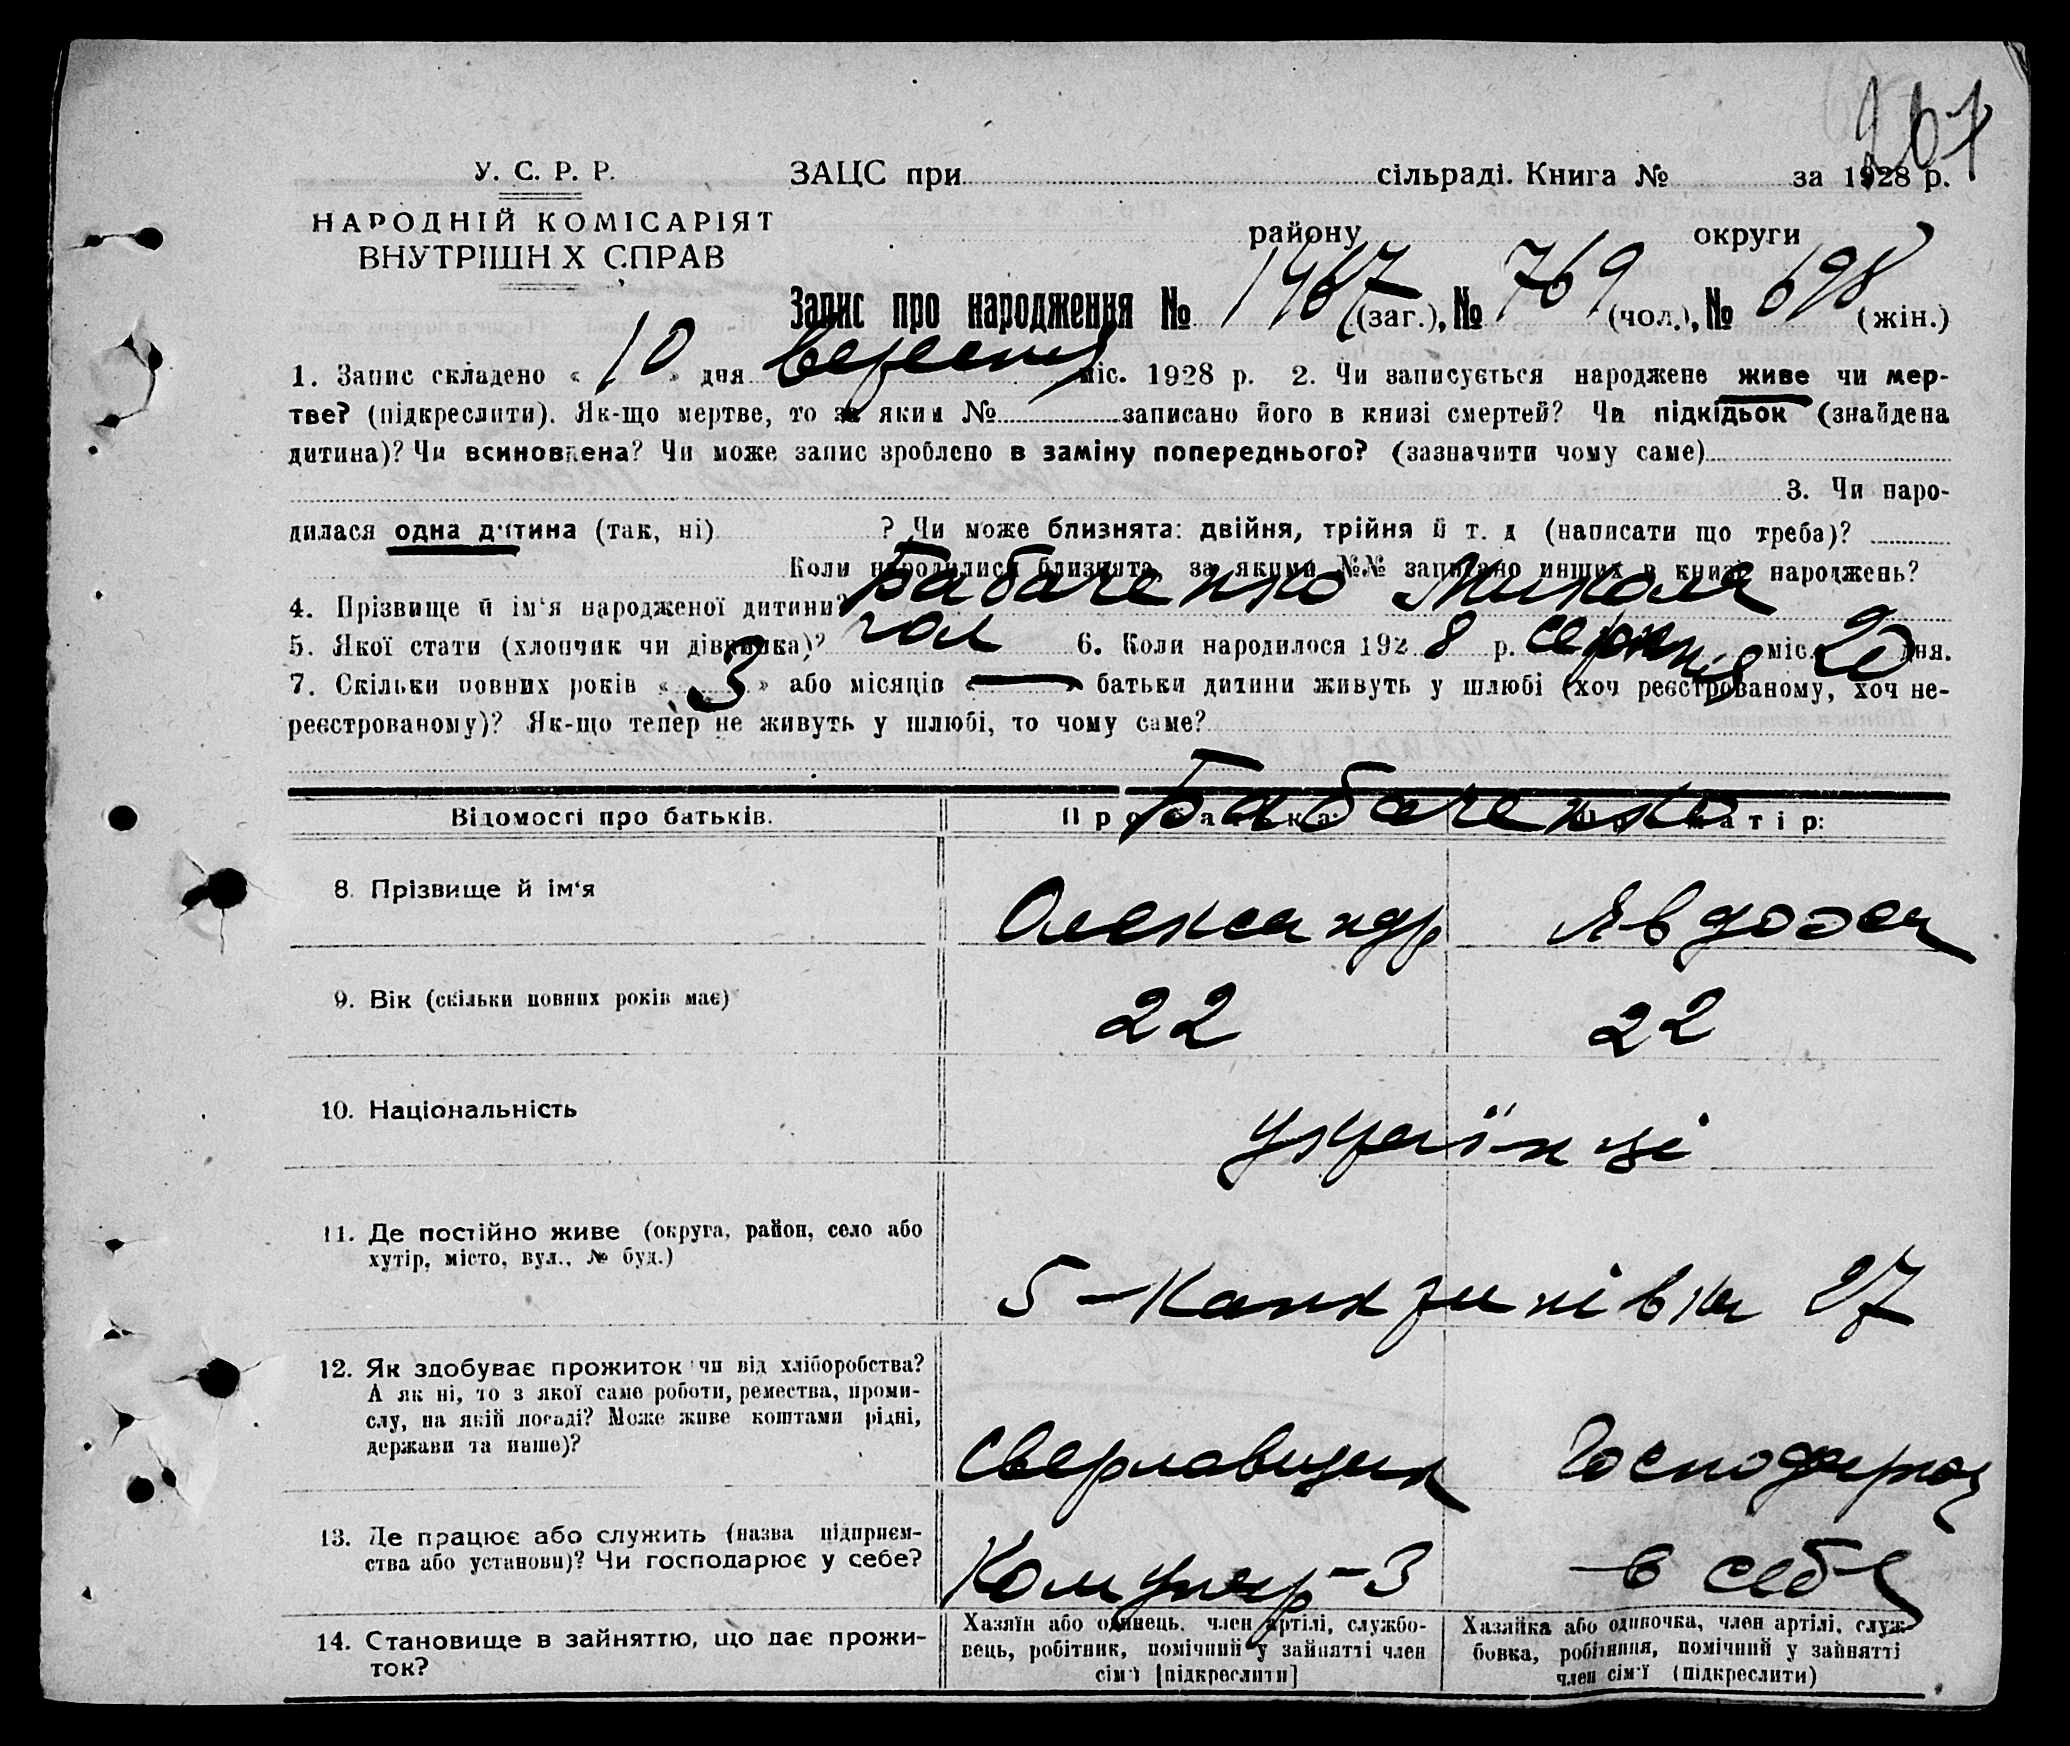 261
У. С. Р. Р.
ЗАЦС при сільраді. Книга № за 1928 р.
НАРОДНІЙ КОМІСАРІЯТ
ВНУТРІШН Х СПРАВ
району округи
Запис про народження № 1467 (заг.), № 769 (чол.), № 698 (жін.)
1. Запис складено « 10 » дня вересня міс. 1928 р. 2. Чи записується народжене живе чи мер-
тве? (підкреслити). Як-що мертве, то за яким № записано його в книзі смертей? Чи підкідьок (знайдена
дитина)? Чи всиновлена? Чи може запис зроблено в заміну попереднього? (зазначити чому саме)
3. Чи наро-
дилася одна дитина (так, ні) ? Чи може близнята: двійня, трійня й т. д (написати що треба)?
Коли народилися близнята, за якими №№ записано инших в книзі народжень?
4. Прізвище й ім‘я народженої дитини? Бабаченко Микола
5. Якої стати (хлопчик чи дівчинка)? чол 6. Коли народилося 192 8 р. серпня міс. 20 дня.
7. Скільки повних років « 3 » або місяців « — » батьки дитини живуть у шлюбі (хоч реєстрованому, хоч не-
реєстрованому)? Як-що тепер не живуть у шлюбі, то чому саме?
Бабаченко
Відомості про батьків. Про батька: Про матір:
8. Прізвище й ім‘я Олександр Явдоха
9. Вік (скільки повних років має) 22 22
10. Національність українці
11. Де постійно живе (округа, район, село або
хутір, місто, вул., № буд.)
5 - 27
12. Як здобуває прожиток чи від хліборобства?
А як ні, то з якої саме роботи, ремества, проми-
слу, на якій посаді? Може живе коштами рідні,
держави та инше)?
Сверловщик Господарка
13. Де працює або служить (назва підприєм-
ства або установи)? Чи господарює у себе?
-3 в себе
14. Становище в зайняттю, що дає прожи-
ток?
Хазяїн або одинець, член артілі, службо-
вець, робітник, помічний у зайнятті член
сім‘ї [підкреслити]
Хазяйка або одиночка, член артілі, служ-
бовка, робітниця, помічний у зайнятті
член сім‘ї (підкреслити)